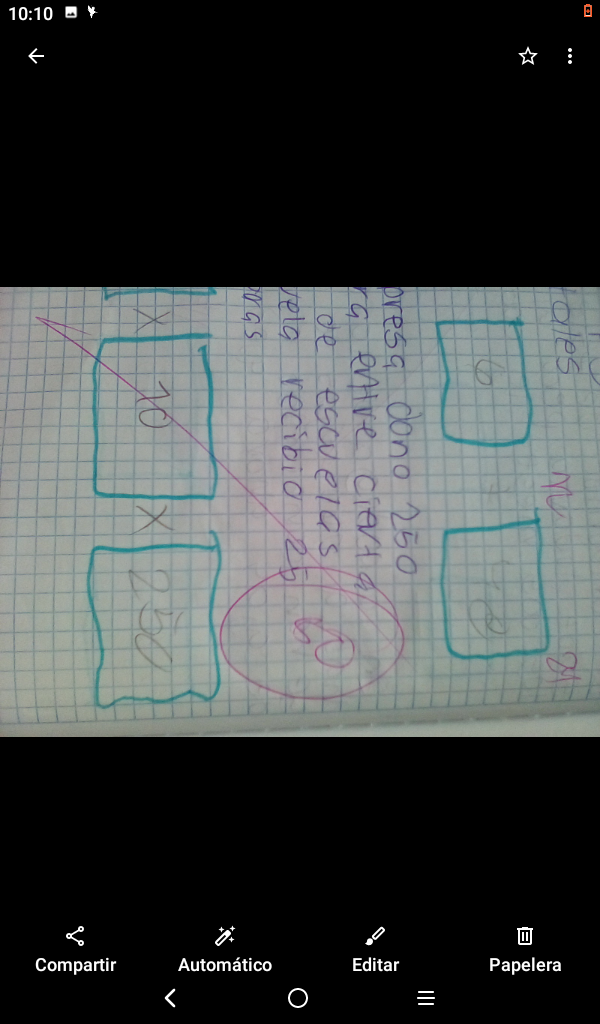 10:10
talles
6
presa dono 250
ra entre cierta
de escuelas
uela recibio 25
oras
X
10
X
250
Compartir
Automático
Editar
Papelera